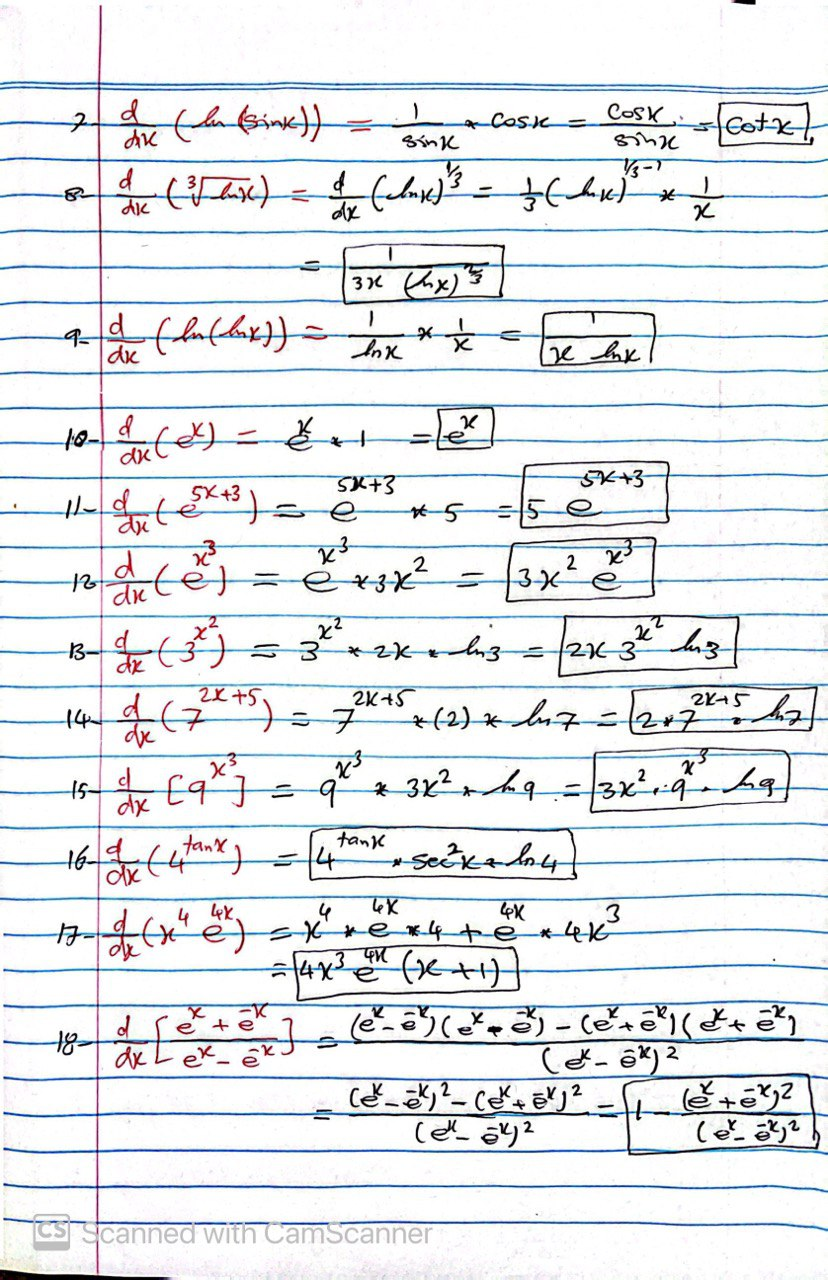 7- d/dx (ln (sinx)) = 1/sinx * cosx = cosx/sinx = cotx
8- d/dx (∛lnx) = d/dx (lnx)^1/3 = 1/3 (lnx)^1/3-1 * 1/x
= 1/(3x (lnx)^2/3)
9- d/dx (ln(lnx)) = 1/lnx * 1/x = 1/(x lnx)
10- d/dx (e^x) = e^x * 1 = e^x
11- d/dx (e^5x+3) = e^5x+3 * 5 = 5 e^5x+3
12 d/dx (e^x^3) = e^x^3 * 3x^2 = 3x^2 e^x^3
13- d/dx (3^x^2) = 3^x^2 * 2x * ln3 = 2x 3^x^2 ln3
14- d/dx (7^2x+5) = 7^2x+5 * (2) * ln7 = 2*7^2x+5 . ln7
15- d/dx [9^x^3] = 9^x^3 * 3x^2 * ln9 = 3x^2 . 9^x^3 . ln9
16- d/dx (4^tanx) = 4^tanx * sec^2x * ln4
17- d/dx (x^4 e^4x) = x^4 * e^4x * 4 + e^4x * 4x^3
= 4x^3 e^4x (x+1)
18- d/dx [(e^x + e^-x)/(e^x - e^-x)] = ((e^x - e^-x)(e^x - e^-x) - (e^x + e^-x)(e^x + e^-x))/(e^x - e^-x)^2
= ((e^x - e^-x)^2 - (e^x + e^-x)^2)/(e^x - e^-x)^2 = 1 - (e^x + e^-x)^2/(e^x - e^-x)^2
CS Scanned with CamScanner